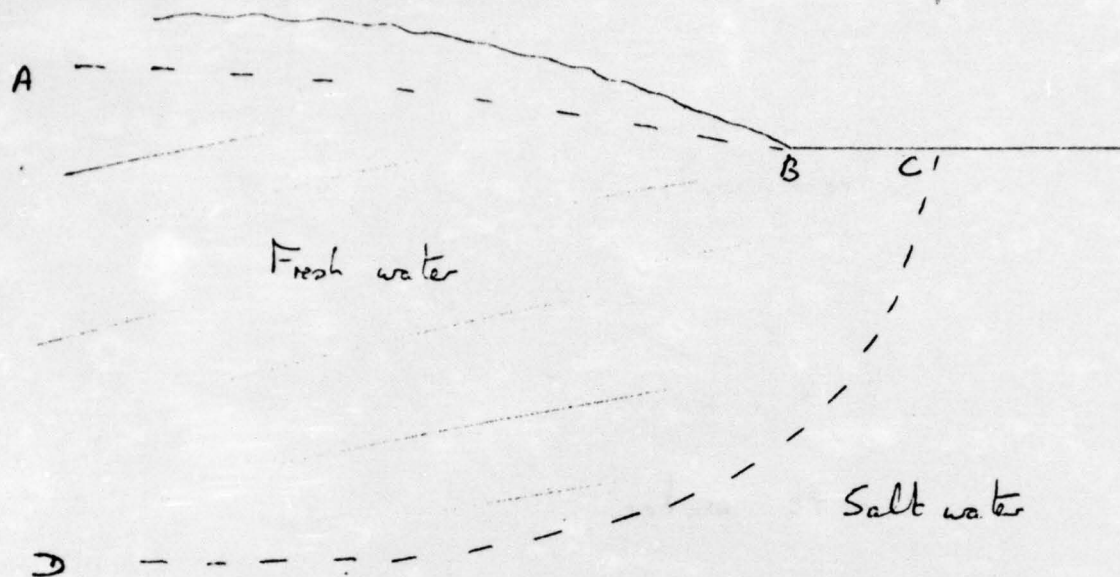 A
B
C
Fresh water
Salt water
D